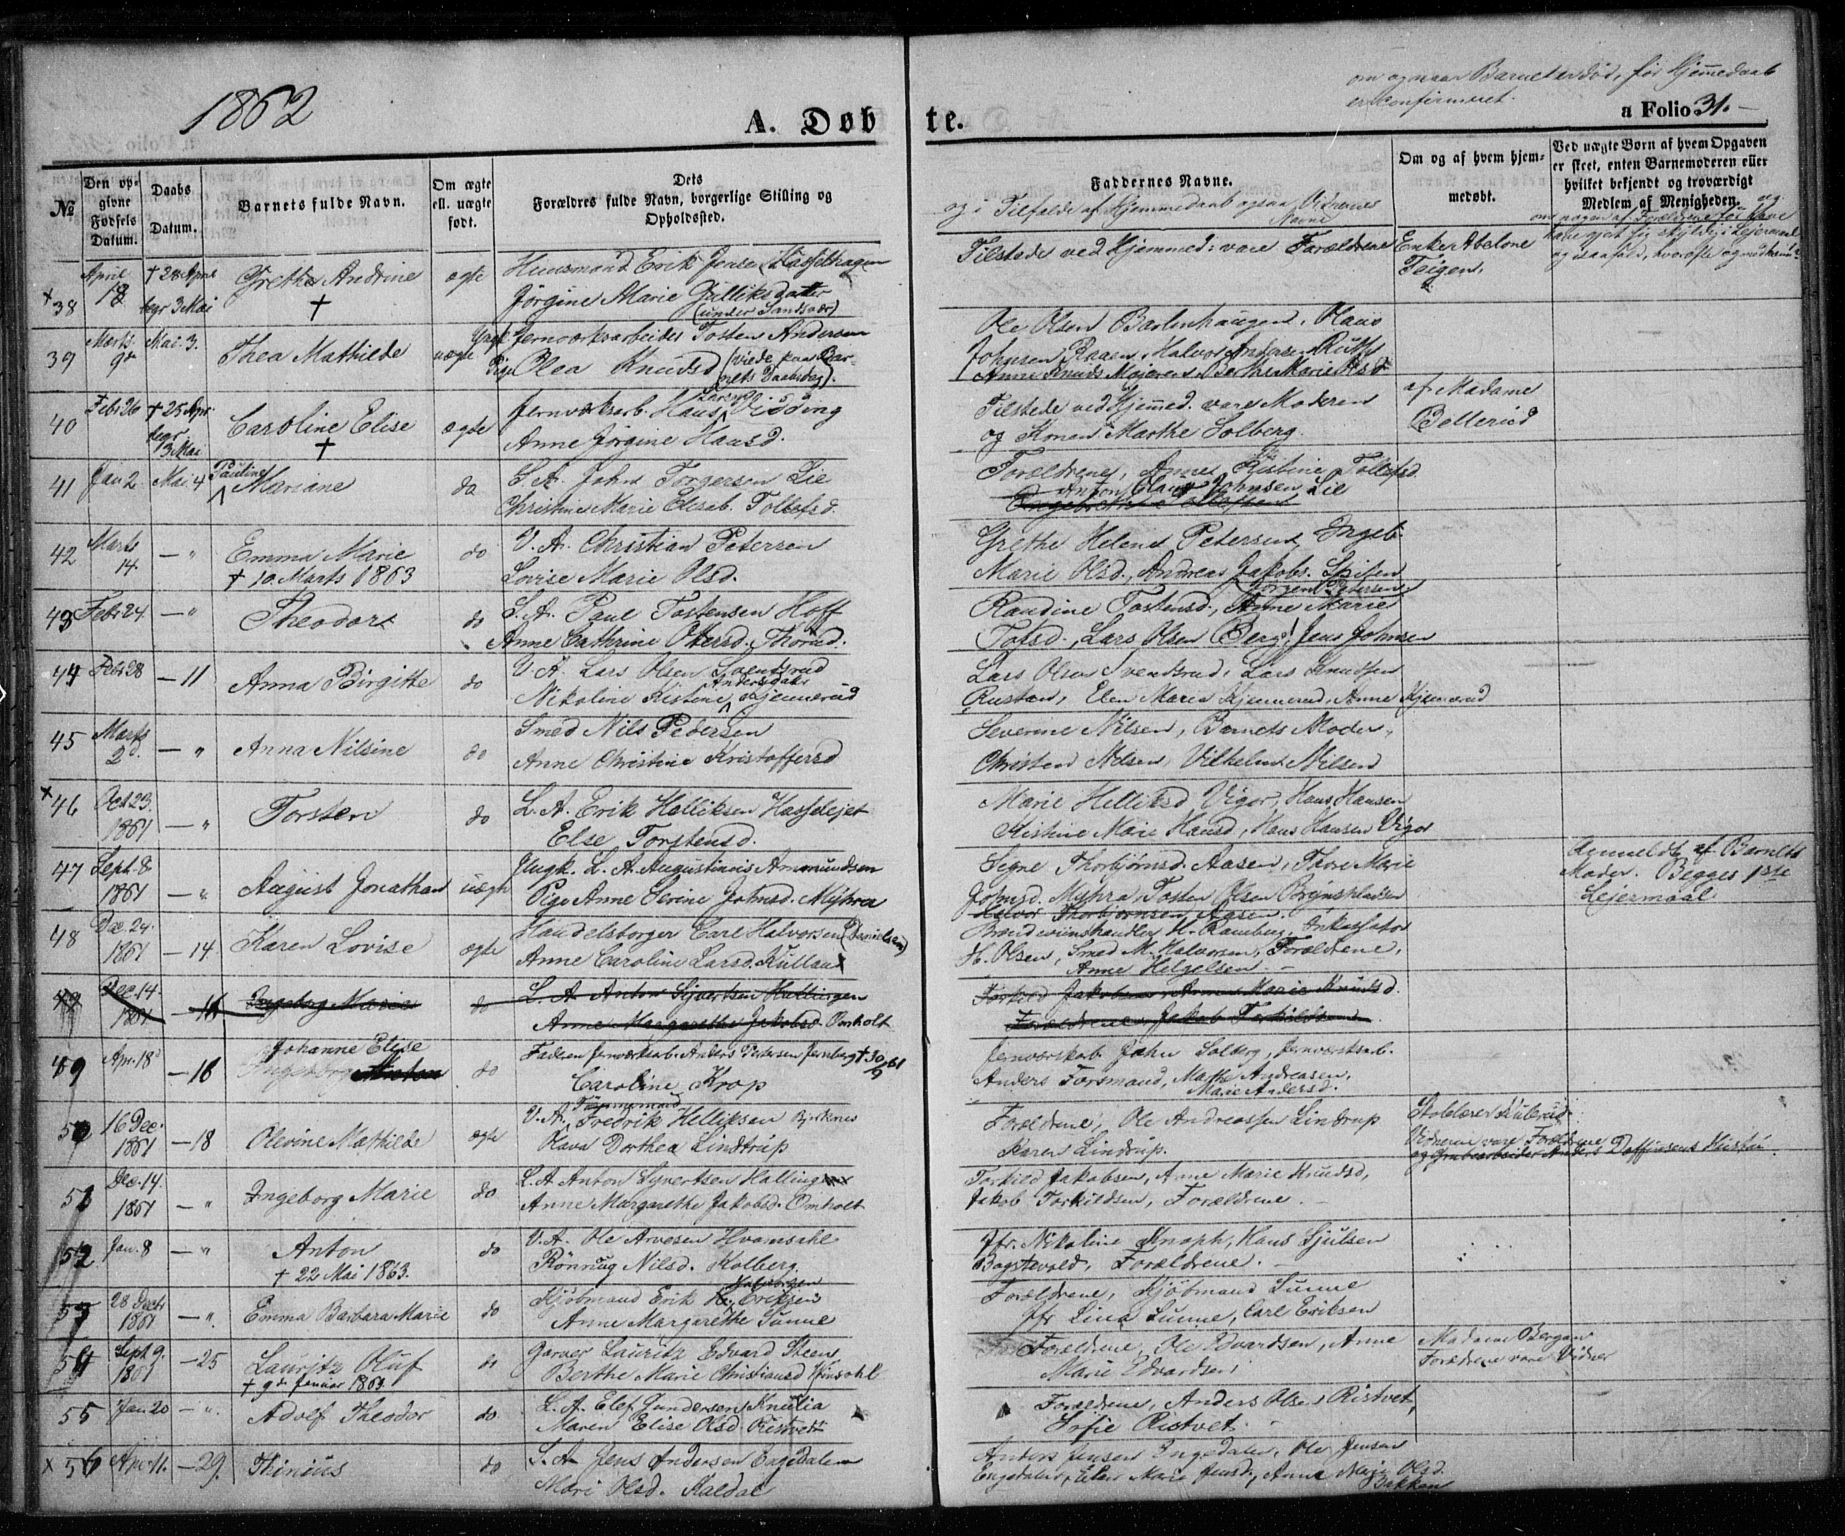 1862
A. Døbte.
om og naar Barnet er død, før Hjemmedaab
er confirmeret.
a Folio 31.
№
Den opgivne Fødsels Datum.
Daabs Datum.
Barnets fulde Navn.
Om ægte ell. uægte født.
Dets
Forældres fulde Navn, borgerlige Stilling og
Opholdssted.
Faddernes Navne.
og i Tilfælde af Hjemmedaab ogsaa Vidnernes
Navne
Om og af hvem hjemmedøbt.
Ved uægte Børn af hvem Opgaven
er skeet, enten Barnemoderen eller
hvilket bekjendt og troværdigt
Medlem af Menigheden
38 April 18 † 28 April begr 3 Mai Grethe Andrine † ægte Huusmand Erik Jensen Hasselhagen
Jørgine Marie Gulliksdatter
(under Sandsvær)
Tilstede ved Hjemmed: vare Forældrene
Enke Abelone
Teigen.
39 Marts 9de Mai 3. Thea Mathilde uægte Ungk. Jernværksarbeider Tosten Andersen
Pige Olea Knudsd (viede paa Barnets Daabsdag).
Ole Olsen Barlenhaugen, Olaus
Johnsen Raaen, Halvor Andersen Ruth
Anne Knuds Mojeren, Berthe Marie Olsd
40 Febr 26 † 25 Apr. begr 3 Mai Caroline Elise † ægte Jernværksarb. Hans Larsen Vidding
Anne Jørgine Hansd.
Tilstede ved Hjemmed. vare Moderen
og Konen Marthe Solberg.
af Madame
Bellerud
41 Jan 2 Mai 4 Pauline Mariane do S.A. John Torgersen Lie
Christine Marie Elisab. Tollefsd.
Forældrene, Anne Kistine Tollefsd.
Anton Olaus Johnsen Lie
42 Marts 14. — " Emma Marie do V.A. Christian Petersen
† 10 Marts 1863
Lovise Marie Olsd.
Grethe Helene Petersen, Ingeb.
Marie Olsd., Andreas Jakobs. Spiten
Jørgen Petersen
43 Febr 24 — " Theodor do S.A. Paul Tostensen Hoff
Anne Cathrine Ottersd. Thorud.
Randine Tostensd., Anne Marie
Tofsd., Lars Olsen Berg, Jens Johnsen
44 Febr 28 — 11 Anna Birgitte do V.A. Lars Olsen Svendsrud
Nikoline Kistine Andersdatr Kjennerud
Lars Olsen Svendsrud, Lars Knudsen
Rustan, Elen Marie Kjennerud, Anne Kjennerud
45 Marts 2d. — " Anna Nilsine do Smed Nils Pedersen
Anne Christine Kristoffersd
Severine Nilsen, Barnets Moder,
Christian Nilsen, Vilhelm Nilsen
46 Oct 23. 1861 — " Torsten do L.A. Erik Helliksen Hasselejet
Else Torstensd.
Marie Helliksd Vigor, Hans Hansen
Kistine Marie Hansd, Hans Hansen Vigor
47 Sept. 8 1861 — " August Jonathan uægte Ungk. L.A. Augustinus Ammundsen
Pige Anne Serine Johnsd. Myhra
Signe Thorbjørnsd. Aasen, Thore Marie
Johnsd. Myhra, Tosten Olsen Borgnspladsen
Halvor Thorbjørnsen Aasen.
Anmeldt af Barnets
Moder. Begges 1ste
Leiermaal
48 Dec 24. 1861 — 14 Karen Lovise ægte Handelsborger Carl Halvorsen (Danielsen)
Anne Caroline Larsd. Rulland
Brændevinshandler H. Ramberg, Inkassator
H. Olsen, Smed M. Halvorsen, Forældrene,
Anne Helgelsen. —
49 Dec. 14. 1861 — 18 Ingeborg Marie do L.A. Anton Syvertsen Hallingen
Anne Margarethe Jakobsd. Omholt
Torkild Jakobsen, Anne Marie Knudsd.
Forældrene, Jakob Torkildsen
49 Apr. 18 — 18 Johanne Elise do Faderen Jernværksab. Anders Petersen Jernberg † 30/9 61
Caroline Krop
Jernværksb. John Solberg, Jernværksarb.
Anders Forsmand, Mathe Andreasen,
Marie Andersd.
50 16 Dec. 1861 — 18 Olevine Mathilde ægte V.A. Tømmermand Fredrik Helliksen Bjerknes
Olava Dorthea Lindtrup
Forældrene, Ole Andreassen Lindrup
Karen Lindrup.
Skolelærer Kulerud
Vidnerne vare Forældrene
og Grubearbeider Anders Daffinsens Hustru.
51 Dec. 14 1861 — " Ingeborg Marie do L.A. Anton Syvertsen Halling
Anne Margarethe Jakobsd. Omholt
Torkild Jakobsen, Anne Marie Knudsd,
Jakob Torkildsen, Forældrene. —
52 Jan. 8 — " Anton do V.A. Ole Arvesen Hvamsahl
† 22 Mai 1863.
Rønnug Nilsd. Kolberg.
Jfr. Nikoline Knoph, Hans Gjulsen
Bogstevold, Forældrene. —
53 28 Decbr 1861 — " Emma Barbara Marie do Kjøbmand Erik Halvorsen Eriksen
Anne Margarethe Sunne
Forældrene, Kjøbmand Sunne
Jfr Lina Sunne, Carl Eriksen
54 Sept 9. 1861 — 25 Lauritz Oluf do Garver Lauritz Edvard Steen
† 9de Januar 1863.
Berthe Marie Christiansd Vinsahl
Forældrene, Ole Edvardsen, Anne
Marie Edvardsen
Madame Bergan
Forældrene vare Vidner
55 Jan. 20 — " Adolf Theodor do L.A. Elef Gundersen Knutia
Maren Elise Olsd Ristvet
Forældrene, Anders Olsen Ristvet,
Sofie Ristvet. —
56 Apr. 11. — 29. Thinius do S.A. Jens Andersen Engedalen
Mari Olsd. Kaldal
Anders Jensen Engedalen, Ole Jensen
Engedalen, Elen Marie Jensd., Anne Marie Olsd.
Bakken